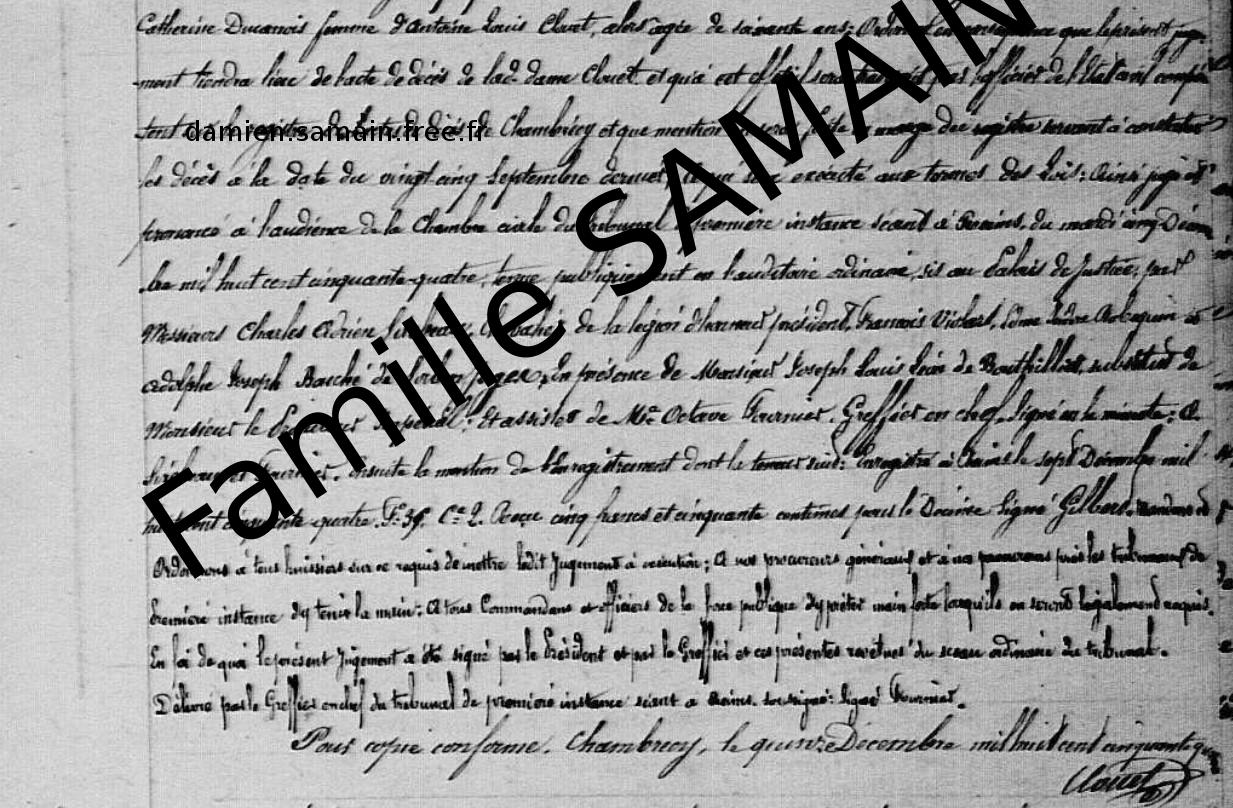 Catherine Ducanois femme d'Antoine Louis Clouet, alors agée de soixante ans; Ordonne en conséquence que le présent juge-
ment tiendra lieu de l'acte de décès de lad. dame Clouet et qu'à cet effet il sera transcrit par l'officier de l'Etat civil compé-
tent registre de Chambrecy et que mention en sera faite en marge du registre servant à constater
les décès à la date du vingt cinq Septembre dernier, sera exécuté aux termes des Lois; Ainsi jugé et
prononcé à l'audience de la Chambre civile du Tribunal de première instance séant à Reims, du mardi cinq Décem-
bre mil huit cent cinquante-quatre, tenue publiquement en l'auditoire ordinaire, sis au Palais de Justice, par
Messieurs Charles Adrien Chevalier de la légion d'honneur président, François Violart,
Adolphe Joseph Bauché de juges, En présence de Monsieur Joseph Louis Léon de Bouthillier, substitut de
Monsieur le Procureur Impérial; Et assistés de Me. Octave Fournier, Greffier en chef. Signé en la minute: A.
et Fournier. Ensuite la mention de l'Enregistrement dont la teneur suit: Enregistré à Reims le sept Décembre mil
huit cent cinquante-quatre. Fo. 39. Ce. 2. Reçu cinq francs et cinquante centimes pour le Décime Signé Gilbert. Mandons et
Ordonnons à tous huissiers sur ce requis de mettre ledit Jugement à exécution; A nos procureurs généraux et à nos procureurs près les tribunaux de
Première instance d'y tenir la main: A tous Commandans et officiers de la force publique d'y prêter main forte lorsqu'ils en seront légalement requis.
En foi de quoi le présent Jugement a été signé par le Président et par le Greffier et ces présentes revêtues du sceau ordinaire du tribunal.
Délivré par le Greffier en chef du tribunal de première instance séant à Reims. soussigné: Signé Fournier.
Pour copie conforme. Chambrecy, le quinze Décembre mil huit cent cinquante qu
Clouet
damien.samain.free.fr
Famille SAMAIN